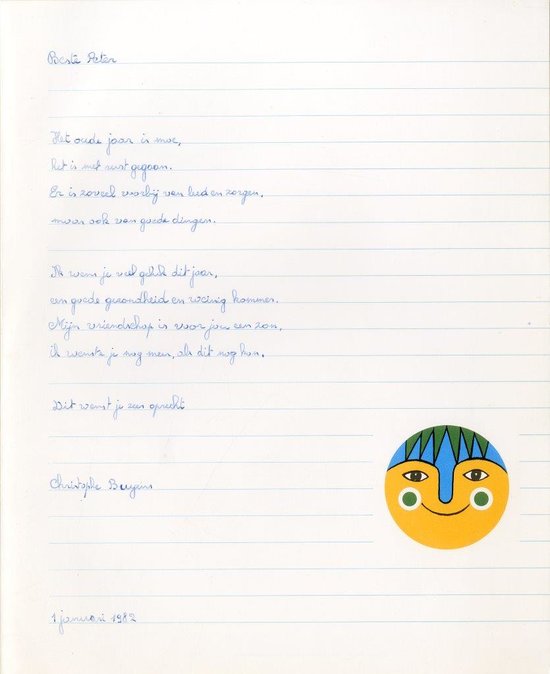 Beste Peter
Het oude jaar is moe,
het is met rust gegaan.
Er is zoveel voorbij van leed en zorgen,
maar ook van goede dingen.
Ik wens je veel geluk dit jaar,
een goede gezondheid en weinig kommer.
Mijn vriendschap is voor jou een zon,
ik wenste je nog meer, als dit nog kon.
Dit wenst je zeer oprecht
Christophe
1 januari 1982